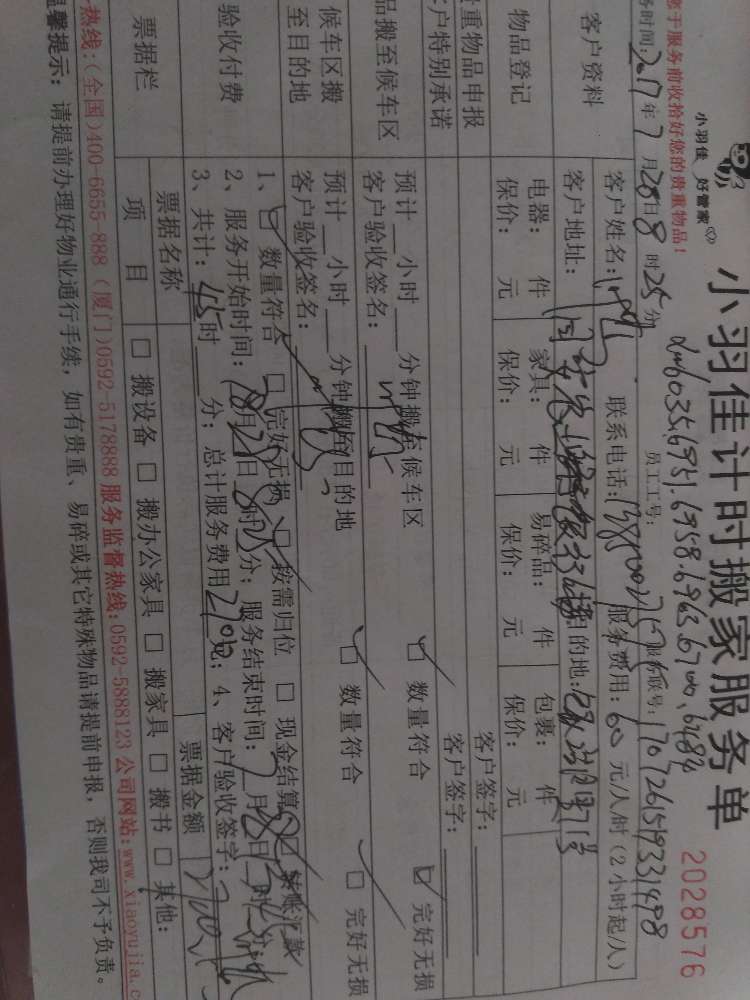 小羽佳 好管家
小羽佳计时搬家服务单
2028576
您于服务前收拾好您的贵重物品!
员工工号:
务时间:2017年7月28日8时25分
6035.6951.6958.6963.6700.6484
服务联号:1707261519331498
客户资料
客户姓名:
联系电话:
服务费用:60元/人/时(2小时起/人)
客户地址:
目的地:
物品登记
电器: 件 家具: 件 易碎品: 件 包裹: 件
保价: 元 保价: 元 保价: 元 保价: 元
贵重物品申报
客户签字:
客户特别承诺
客户签字:
品搬至候车区
预计__小时__分钟搬至候车区 数量符合 完好无损
客户验收签名:
候车区搬至目的地
预计__小时__分钟搬至目的地 数量符合 完好无损
客户验收签名:
验收付费
1、 数量符合 完好无损 按需归位 现金结算 转账汇款
2、服务开始时间: 月28日8时25分;服务结束时间:7月28日 时 分
3、共计:45时__分;总计服务费用2700元;4、客户验收签字:
票据栏
票据名称
票据金额 2700
项目
□ 搬设备 □ 搬办公家具 □ 搬家具 □ 搬书 □ 其他:
热线:(全国)400-6655-888 (厦门)0592-5178888 服务监督热线:0592-5888123 公司网站:www.xiaoyujia.c
温馨提示: 请提前办理好物业通行手续,如有贵重、易碎或其它特殊物品请提前申报,否则我司不予负责。